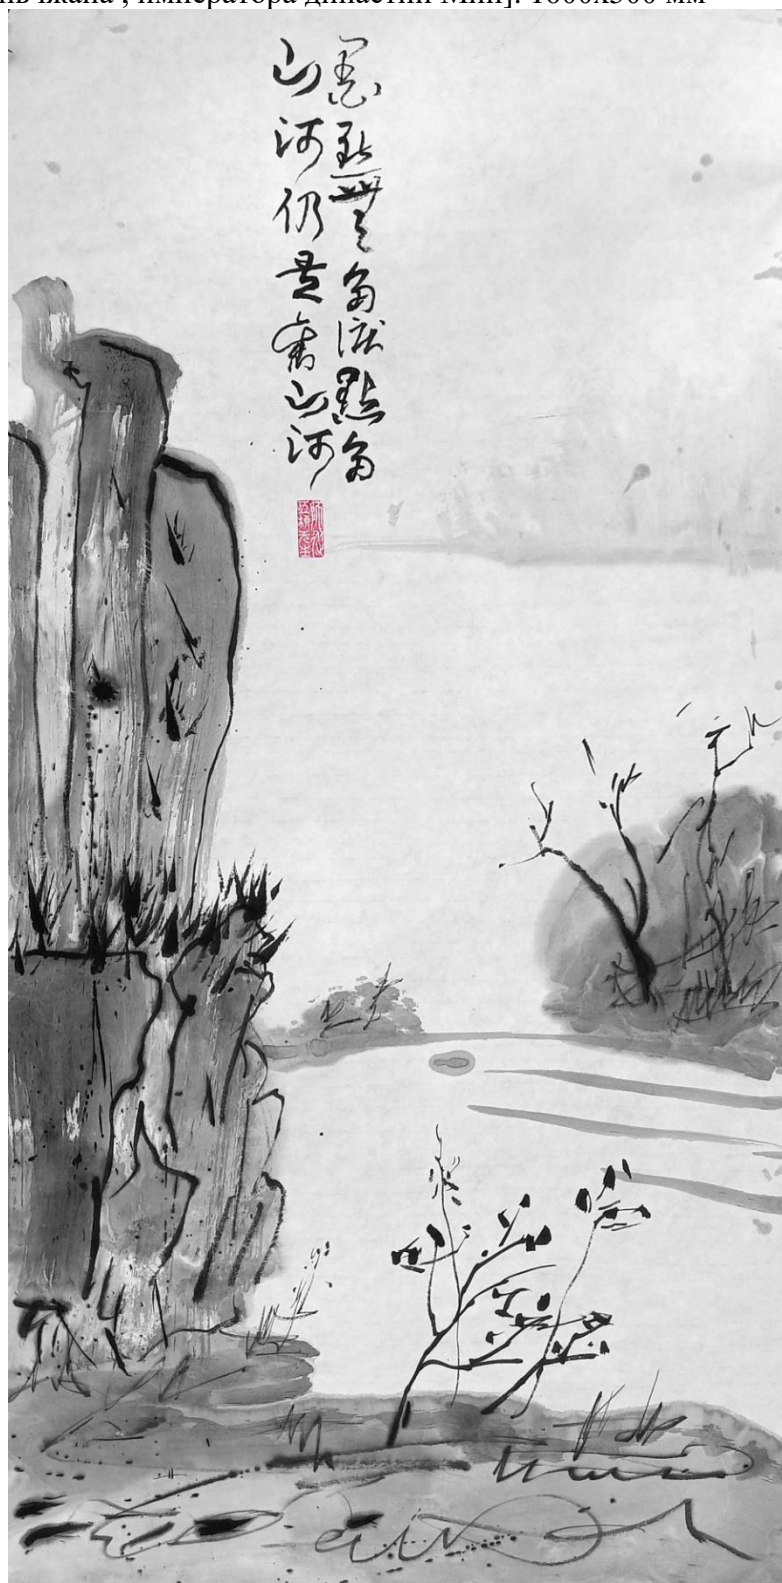 императора династии Мин]. 1600х500 мм
墨點無多淚點多
山河仍是舊山河